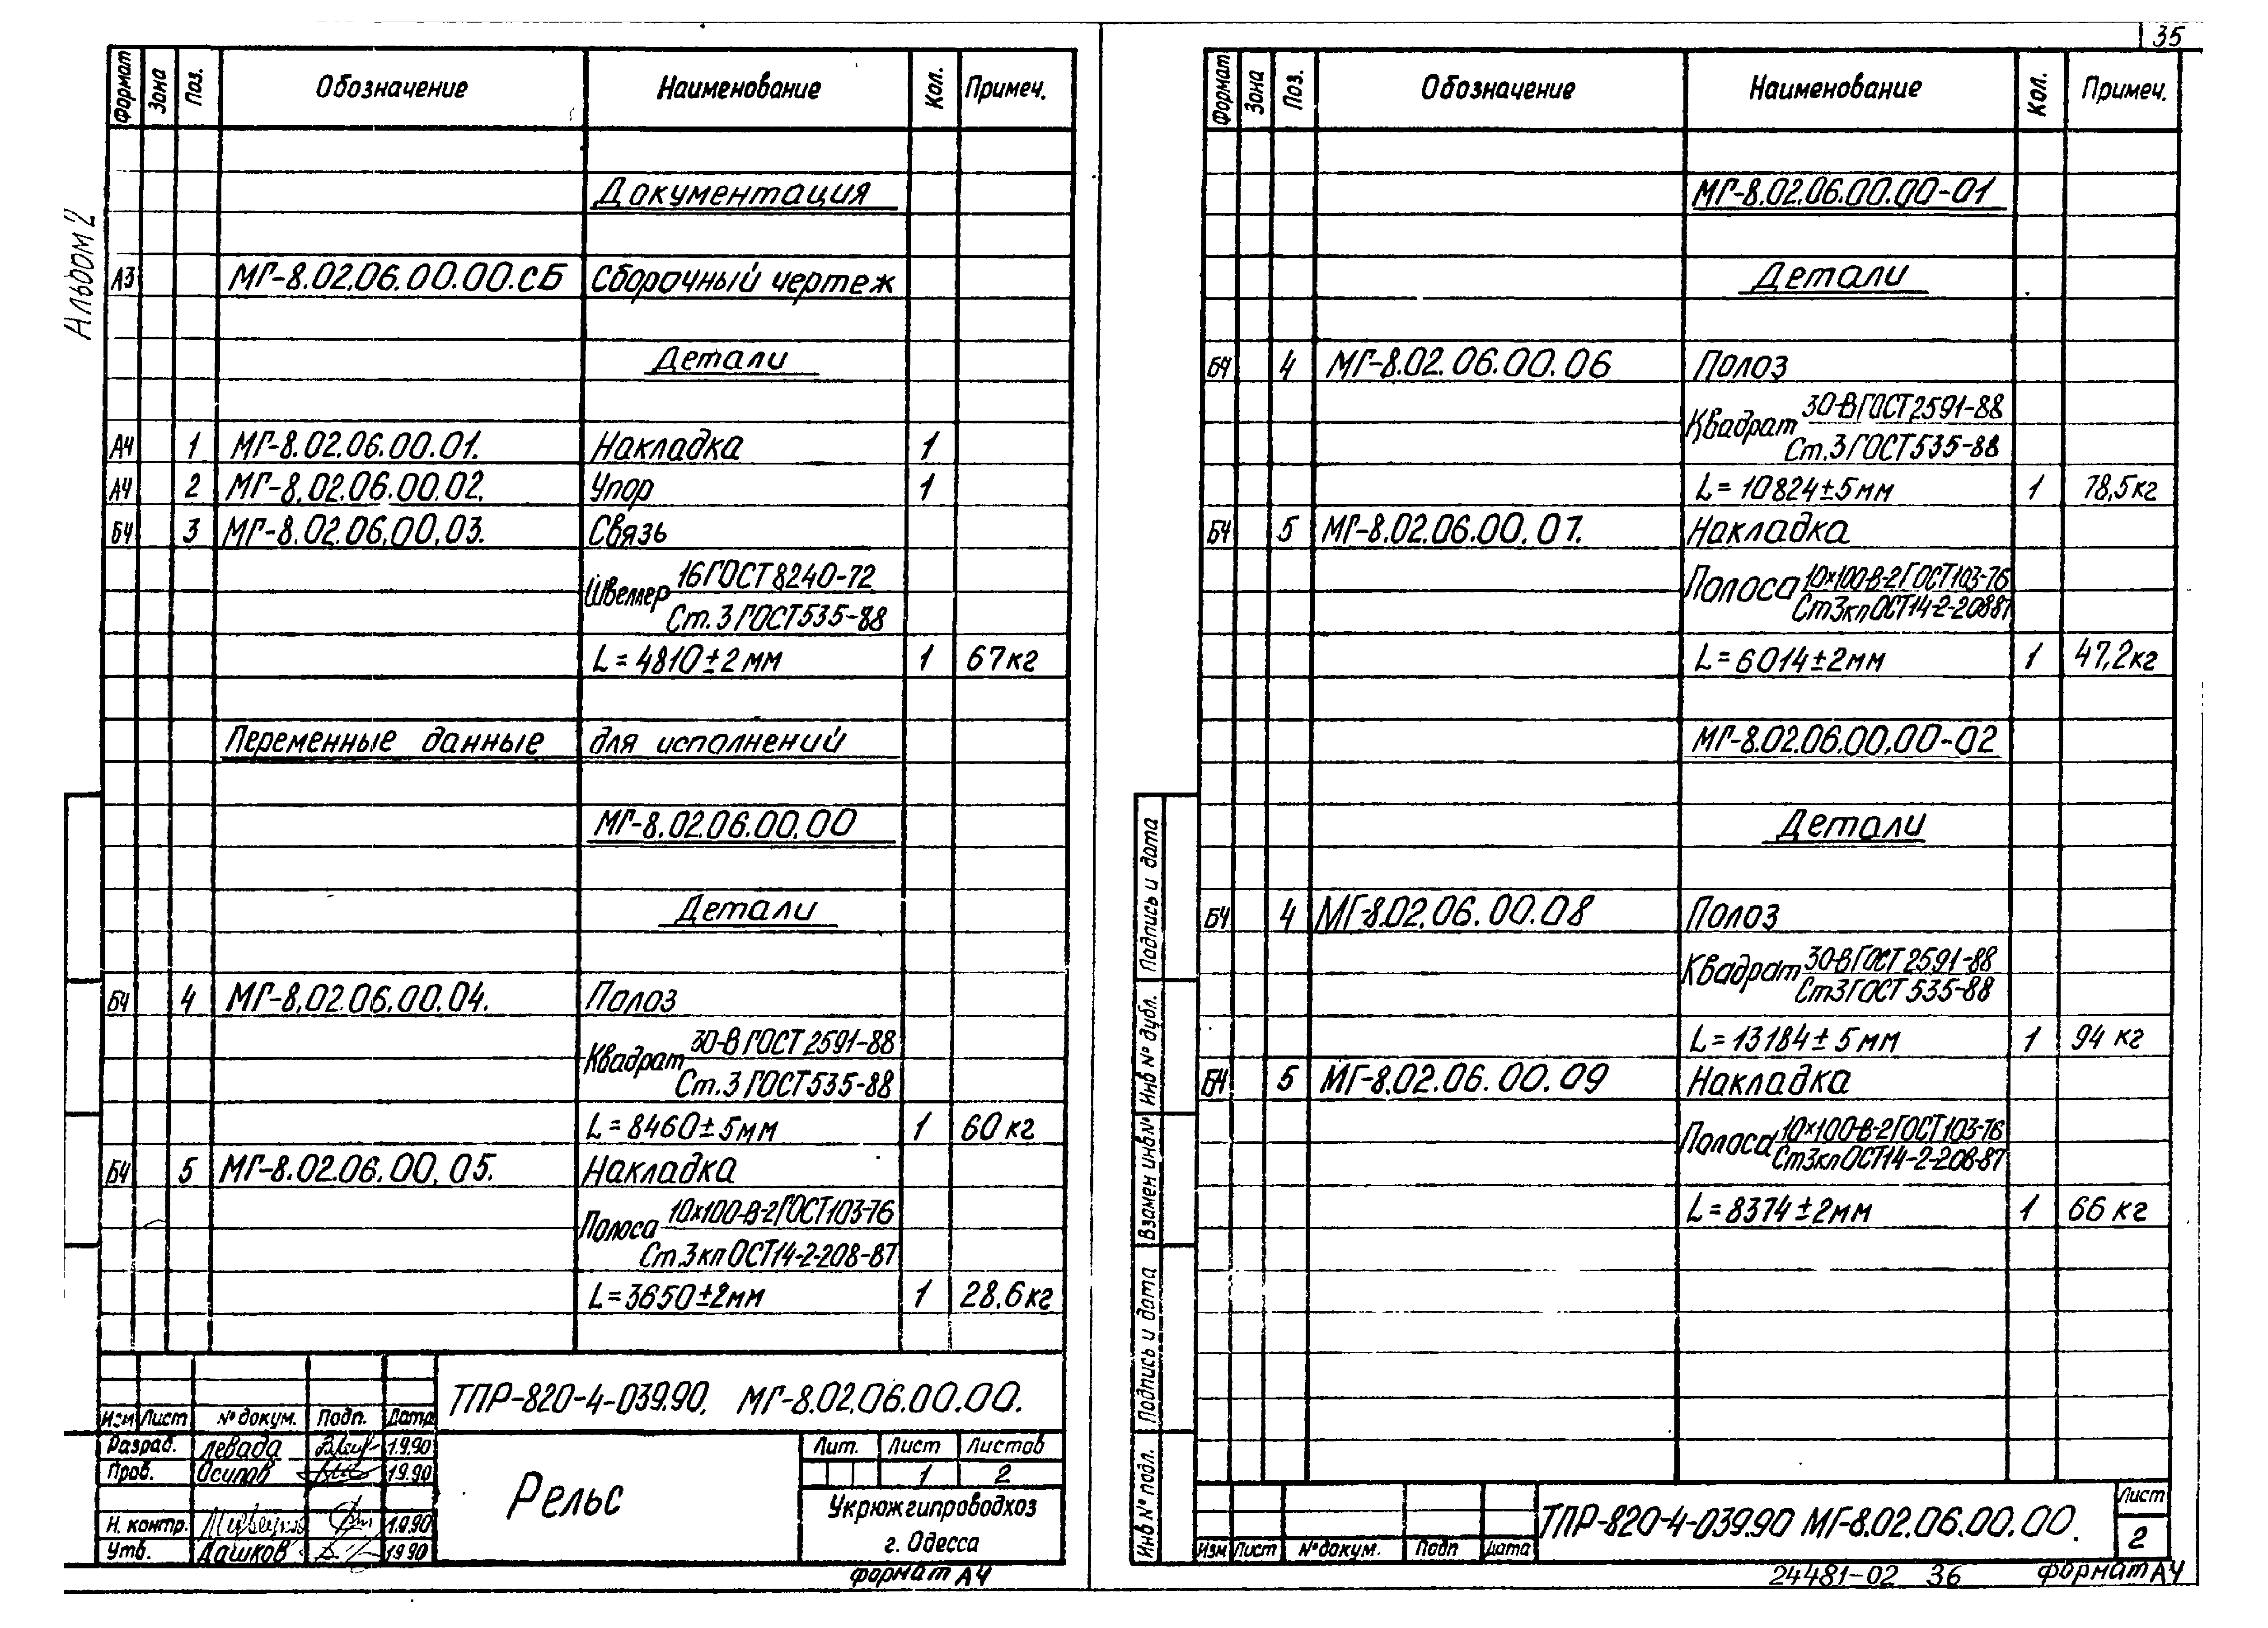 35
Альбом 2
Формат Зона Поз. Обозначение Наименование Кол. Примеч.
Документация
А3 МГ-8.02.06.00.00.СБ Сборочный чертеж
Детали
А4 1 МГ-8.02.06.00.01. Накладка 1
А4 2 МГ-8.02.06.00.02. Упор 1
БЧ 3 МГ-8.02.06.00.03. Связь
Швеллер 16 ГОСТ 8240-72
Ст. 3 ГОСТ 535-88
L = 4810 ± 2 мм 1 67 кг
Переменные данные для исполнений
МГ-8.02.06.00.00
Детали
БЧ 4 МГ-8.02.06.00.04. Полоз
Квадрат 30-В ГОСТ 2591-88
Ст. 3 ГОСТ 535-88
L = 8460 ± 5 мм 1 60 кг
БЧ 5 МГ-8.02.06.00.05. Накладка
Полоса 10×100-В-2 ГОСТ 103-76
Ст.3кп ОСТ 14-2-208-87
L = 3650 ± 2 мм 1 28,6 кг
Изм Лист № докум. Подп. Дата
ТПР-820-4-039.90. МГ-8.02.06.00.00.
Разраб. Левада 1.9.90
Пров. Осипов 1990
Н. контр. 1.9.90
Утв. Дашков 1990
Рельс
Лит. Лист Листов
1 2
Укрюжгипроводхоз
г. Одесса
формат А4
Формат Зона Поз. Обозначение Наименование Кол. Примеч.
МГ-8.02.06.00.00-01
Детали
БЧ 4 МГ-8.02.06.00.06 Полоз
Квадрат 30-В ГОСТ 2591-88
Ст. 3 ГОСТ 535-88
L = 10824 ± 5 мм 1 78,5 кг
БЧ 5 МГ-8.02.06.00.07. Накладка
Полоса 10×100-В-2 ГОСТ 103-76
Ст3кп ОСТ 14-2-20887
L = 6014 ± 2 мм 1 47,2 кг
МГ-8.02.06.00.00-02
Детали
БЧ 4 МГ-8.02.06.00.08 Полоз
Квадрат 30-В ГОСТ 2591-88
Ст3 ГОСТ 535-88
L = 13184 ± 5 мм 1 94 кг
БЧ 5 МГ-8.02.06.00.09 Накладка
Полоса 10×100-В-2 ГОСТ 103-76
Ст3кп ОСТ 14-2-208-87
L = 8374 ± 2 мм 1 66 кг
Подпись и дата
Инв № дубл.
Взамен инв №
Подпись и дата
Инв № подл.
Изм Лист № докум. Подп Дата
ТПР-820-4-039.90 МГ-8.02.06.00.00.
Лист
2
24481-02 36 формат А4